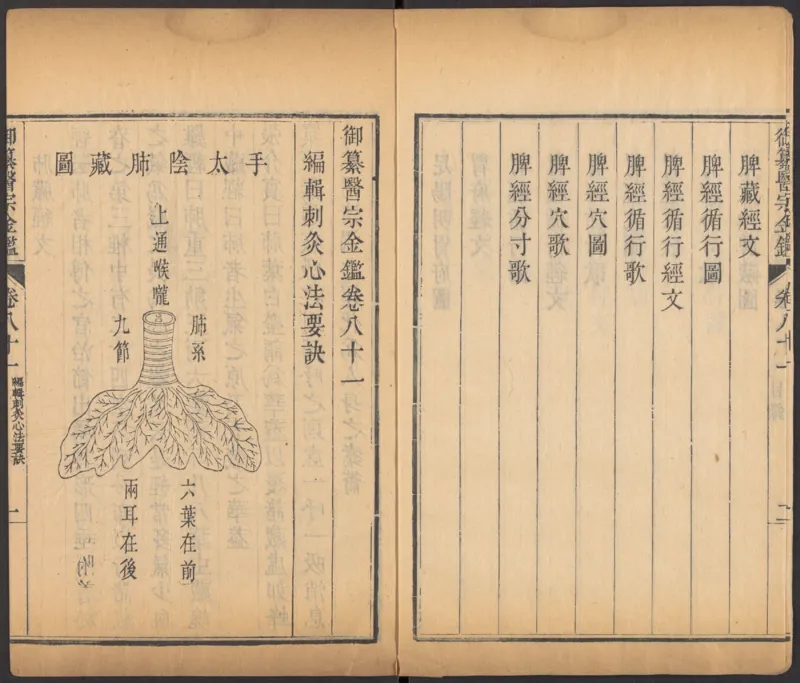 御纂醫宗金鑑
卷八十一
目錄
二
脾藏經文
脾經循行圖
脾經循行經文
脾經循行歌
脾經穴圖
脾經穴歌
脾經分寸歌
御纂醫宗金鑑卷八十一
編輯刺灸心法要訣
手太陰肺藏圖
上通喉嚨
肺系
九節
六葉在前
兩耳在後
御纂醫宗金鑑
卷八十一
編輯刺灸心法要訣
一